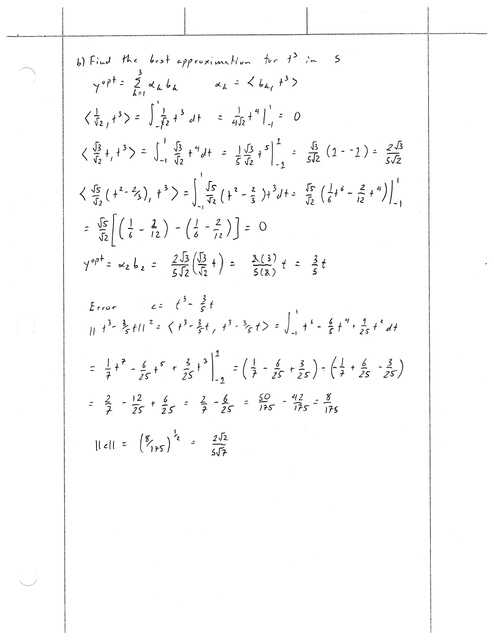 b) Find the best approximation for t³ in S
y^opt = Σ_{k=1}^{3} α_k b_k    α_k = < b_k, t³ >
< 1/√2, t³ > = ∫_{-1}^{1} 1/√2 t³ dt = 1/(4√2) t⁴ |_{-1}^{1} = 0
< √3/√2 t, t³ > = ∫_{-1}^{1} √3/√2 t⁴ dt = 1/5 √3/√2 t⁵ |_{-1}^{1} = √3/(5√2) (1 - -1) = 2√3/(5√2)
< √5/√2 (t² - 2/3), t³ > = ∫_{-1}^{1} √5/√2 (t² - 2/3) t³ dt = √5/√2 (1/6 t⁶ - 2/12 t⁴) |_{-1}^{1}
= √5/√2 [(1/6 - 2/12) - (1/6 - 2/12)] = 0
y^opt = α₂ b₂ = 2√3/(5√2) (√3/√2 t) = 2(3)/5(2) t = 3/5 t
Error    e = t³ - 3/5 t
|| t³ - 3/5 t ||² = < t³ - 3/5 t, t³ - 3/5 t > = ∫_{-1}^{1} t⁶ - 6/5 t⁴ + 9/25 t² dt
= 1/7 t⁷ - 6/25 t⁵ + 3/25 t³ |_{-1}^{1} = (1/7 - 6/25 + 3/25) - (-1/7 + 6/25 - 3/25)
= 2/7 - 12/25 + 6/25 = 2/7 - 6/25 = 50/175 - 42/175 = 8/175
||e|| = (8/175)^{1/2} = 2√2/(5√7)